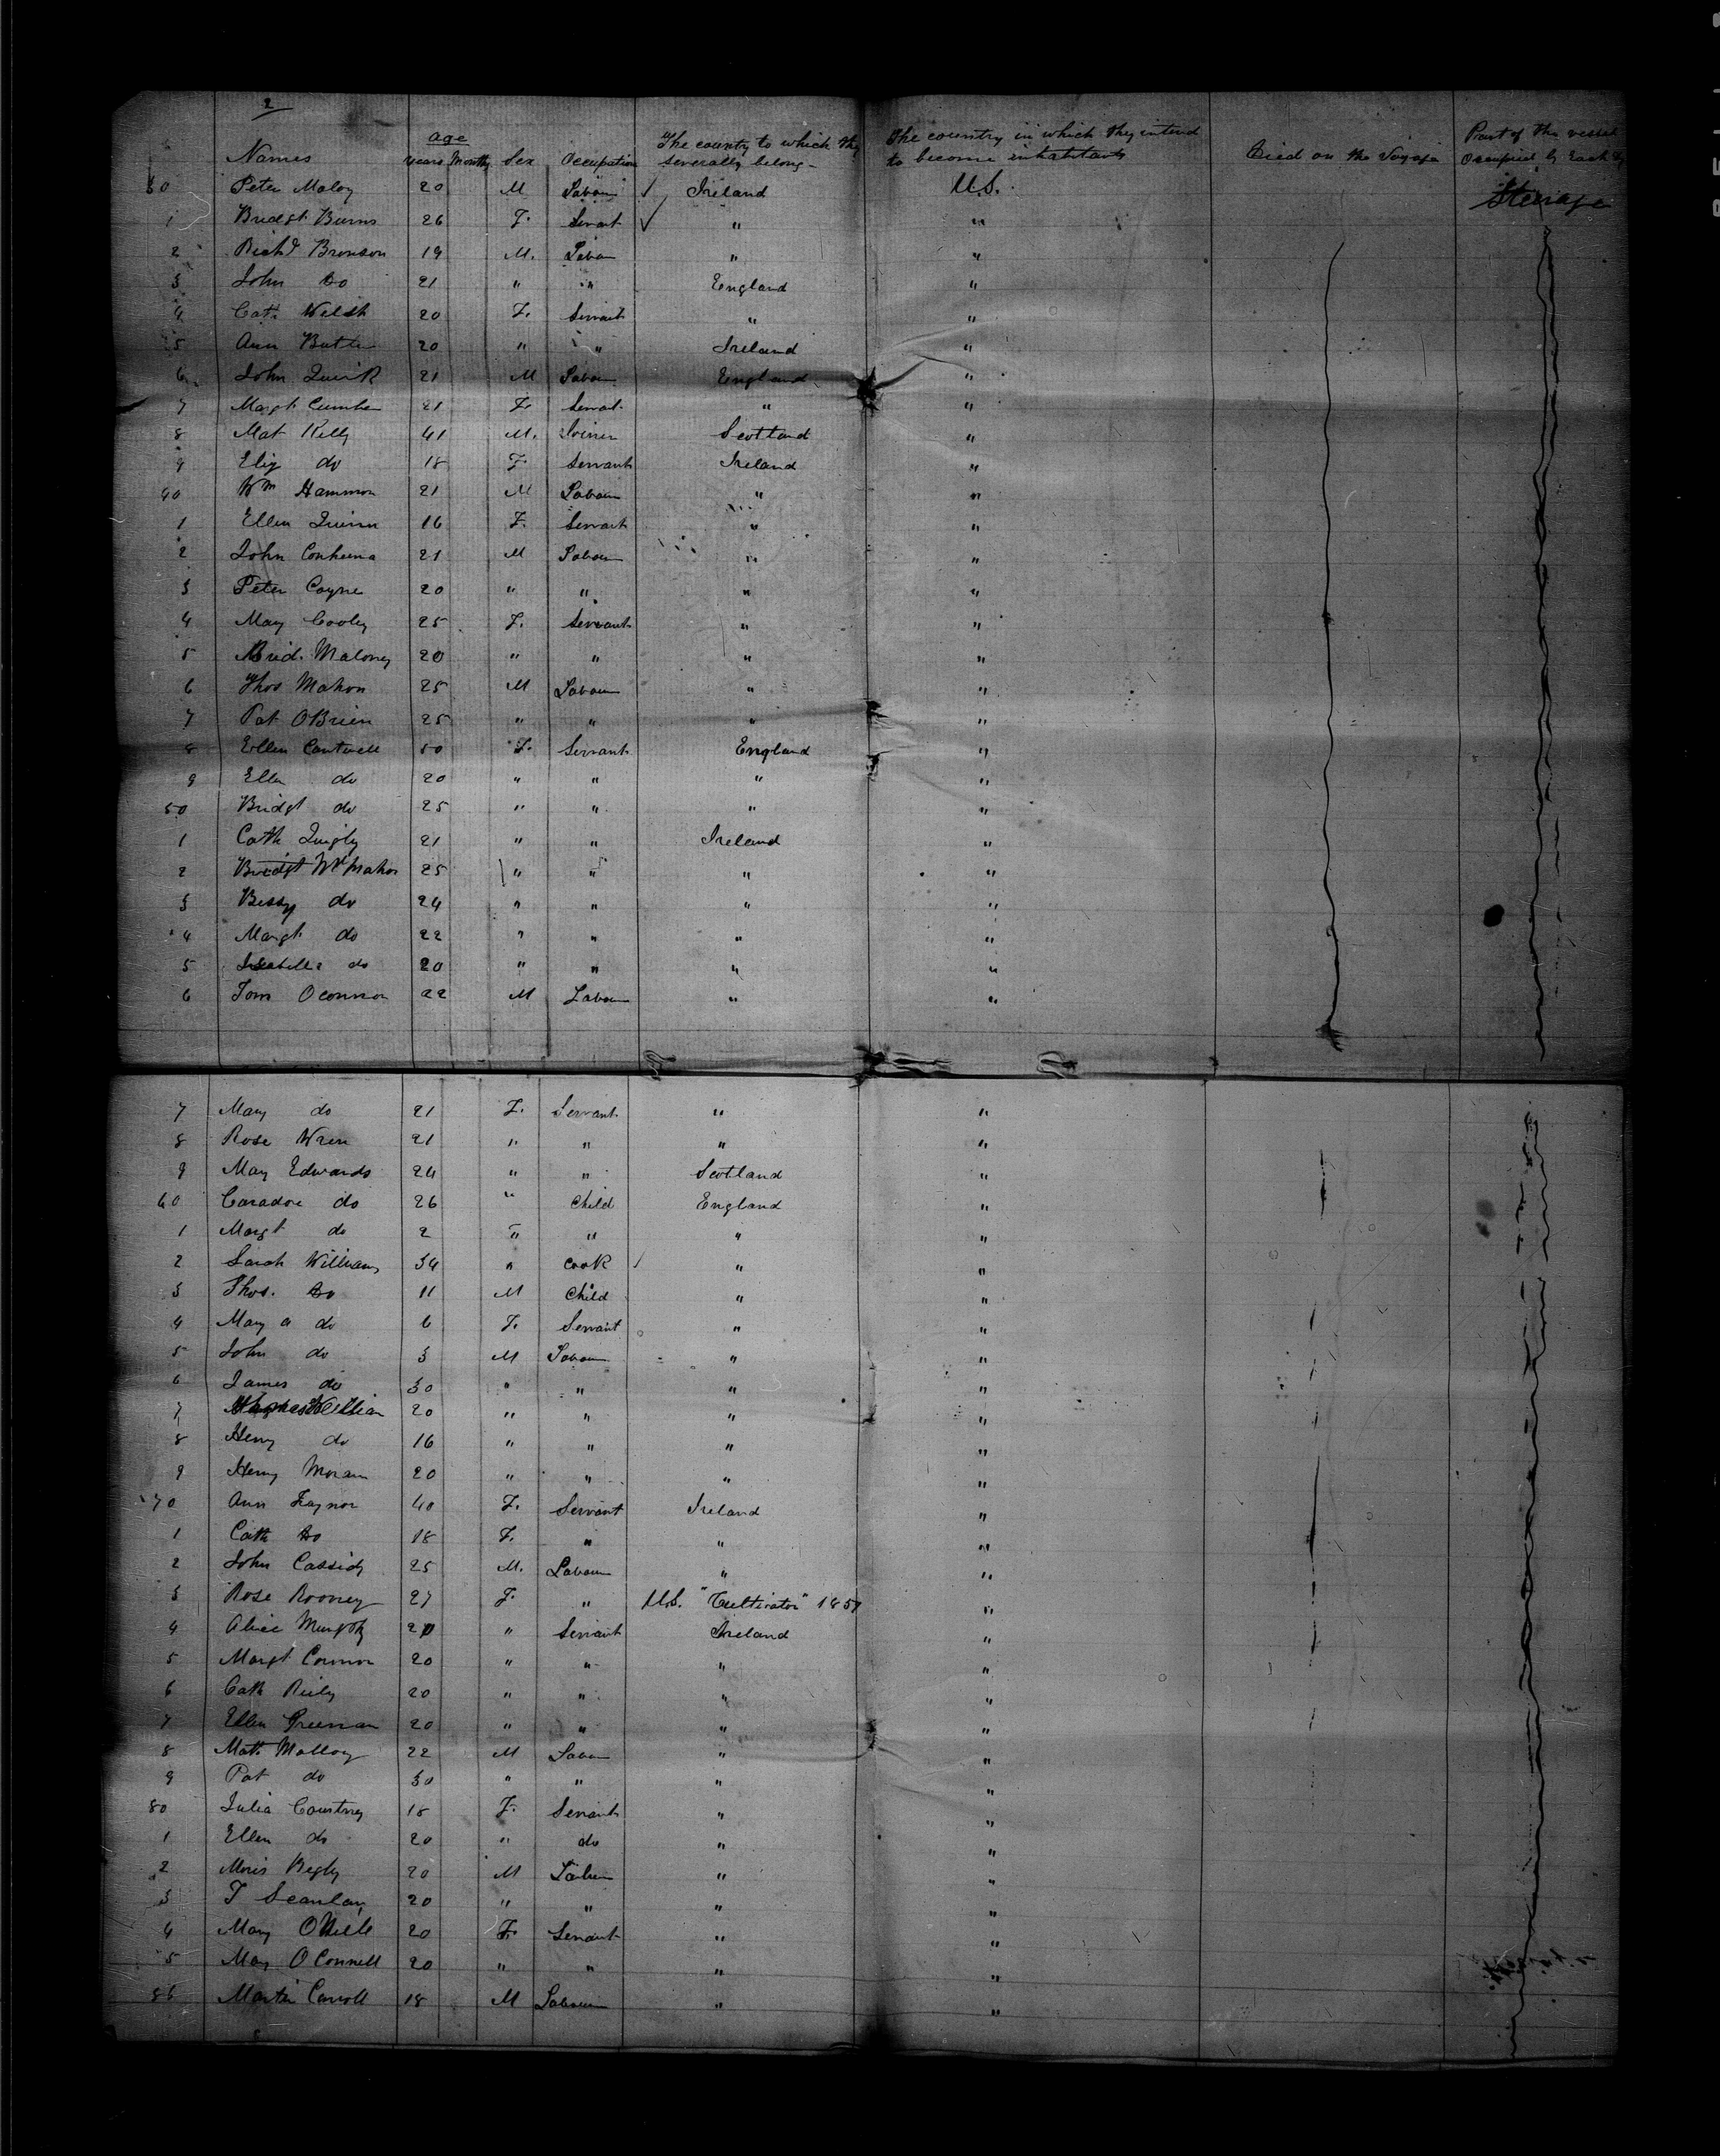 2
Names age years Months Sex Occupation The country to which they severally belong- The country in which they intend to become inhabitants Died on the Voyage Part of the vessel Occupied by each
30 Peter Maloy 20 M Labour Ireland U.S. Steerage
1 Bridgt Burns 26 F. Servt " "
2 Richd Bronson 19 M. Labour " "
3 John Do 21 " " England "
4 Cath Welsh 20 F. Servant " "
5 Ann Butler 20 " " Ireland "
6 John Quirk 21 M Labour England "
7 Margt 21 F. Servat " "
8 Mat Kelly 41 M. Joiner Scotland "
9 Eliz do 18 F Servant Ireland "
40 Wm Hammon 21 M Labour " "
1 Ellen Quinn 16 F. Servant " "
2 John 21 M Labour " "
3 Peter Coyne 20 " " " "
4 Mary Cooley 25 F. Servant " "
5 Brid. Maloney 20 " " " "
6 Thos Mahon 25 M Labour " "
7 Pat OBrien 25 " " " "
8 Ellen Cantwell 50 F. Servant England "
9 Ellen do 20 " " " "
50 Bridgt do 25 " " " "
1 Cath Quigly 21 " " Ireland "
2 Bridgt McMahon 25 " " " "
3 Bessy do 24 " " " "
4 Margt do 22 " " " "
5 Isabella do 20 " " " "
6 Tom Oconnor 22 M Labour " "
7 Mary do 21 F. Servant " "
8 Rose Wren 21 " " " "
9 Mary Edwards 24 " " Scotland "
60 Caradoc do 26 " Child England "
1 Margt do 2 " " " "
2 Sarah Williams 34 " Cook " "
3 Thos. Do 11 M Child " "
4 Mary a do 6 F. Servant " "
5 John do 3 M Labour " "
6 James do 30 " " " "
7 William 20 " " " "
8 Henry do 16 " " " "
9 Henry Moran 20 " " " "
70 Ann Traynor 40 F. Servant Ireland "
1 Cath Do 18 F. " " "
2 John Cassidy 25 M. Labour " "
3 Rose Rooney 27 F. " U.S. "Cultivator" 1857 "
4 Alice Murphy 20 " Servant Ireland "
5 Margt Connor 20 " " " "
6 Cath Riely 20 " " " "
7 Ellen Freeman 20 " " " "
8 Matt Molloy 22 M Labour " "
9 Pat do 30 " " " "
80 Julia Courtney 18 F. Servant " "
1 Ellen do 20 " do " "
2 Moris Begly 20 M Labour " "
3 T Scanlan 20 " " " "
4 Mary ONeill 20 F. Servant " "
5 Mary OConnell 20 " " " "
86 Martin Carroll 18 M Labour " "